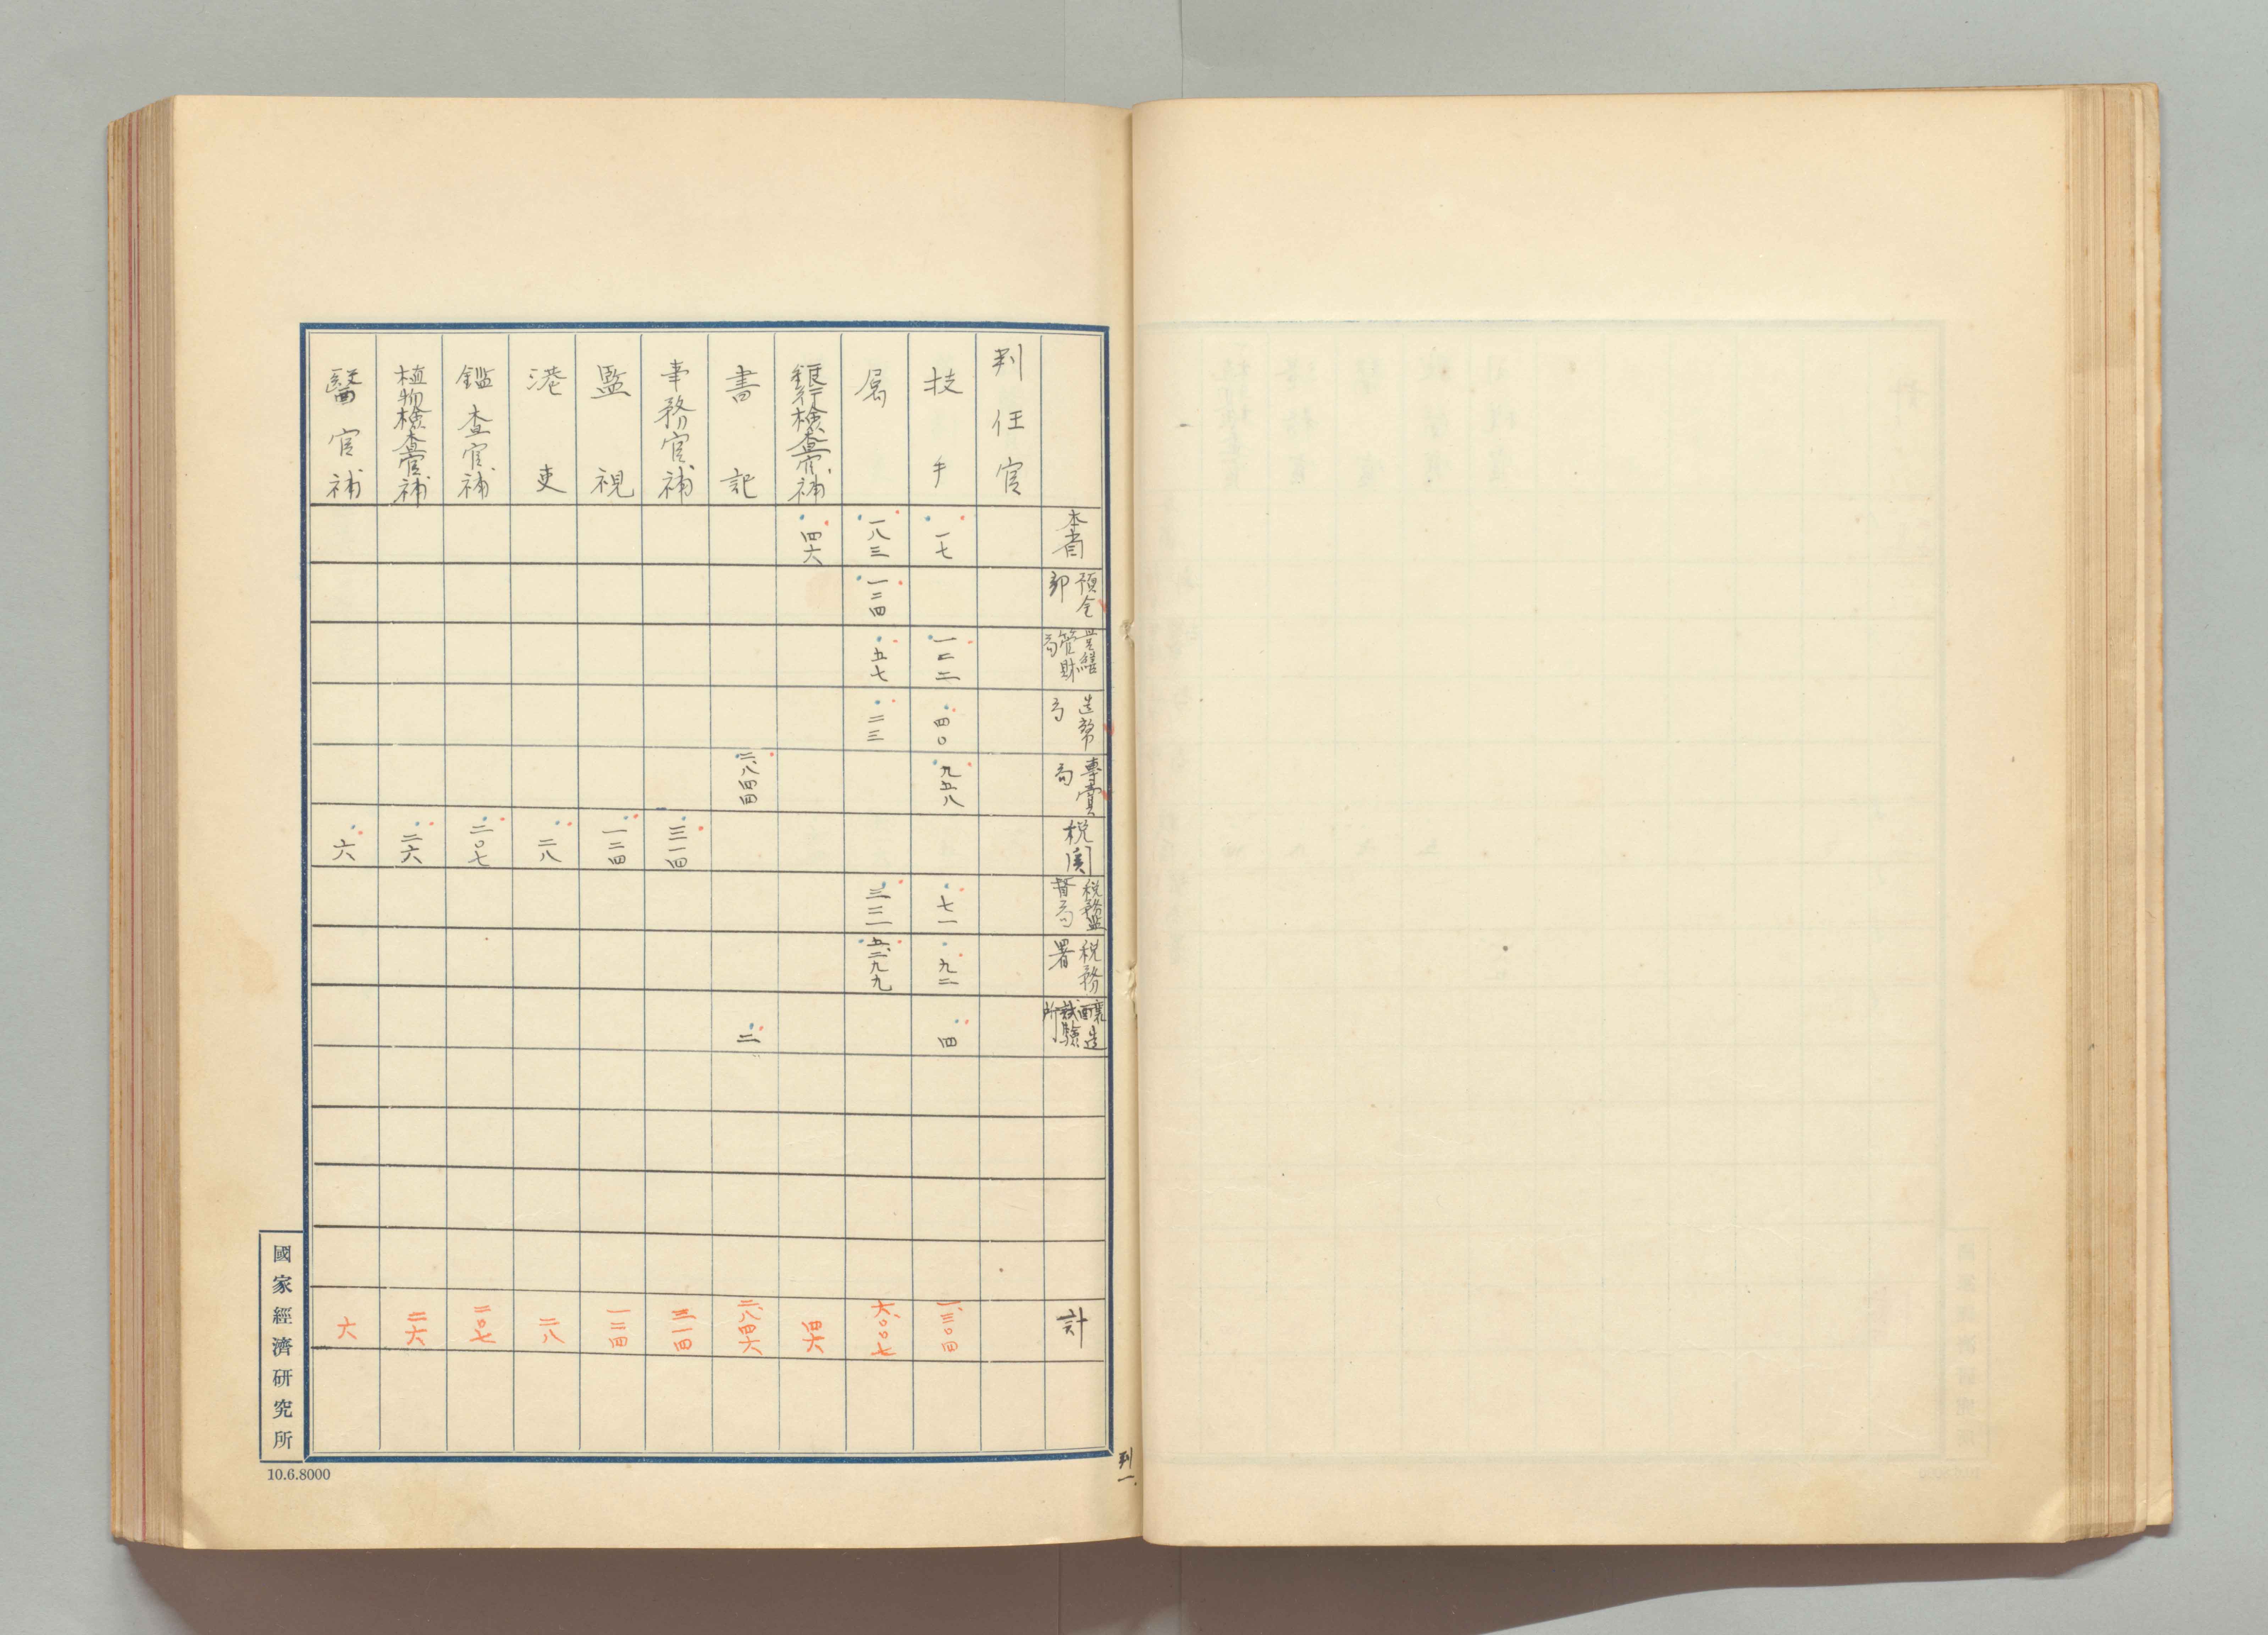 本省
預金部
営繕管財局
造幣局
專賣局
税関
税務監督局
税務署
釀造試驗所
計
判任官
技手
一七
一二二
四〇
九五八
七一
九二
四
一、三〇四
属
一八三
一二四
五七
二三
三二一
五、二九九
六、〇〇七
銀行検査官補
四六
四六
書記
二、八四四
二
二、八四六
事務官補
三一四
三一四
監視
一二四
一二四
港吏
二八
二八
鑑査官補
二〇七
二〇七
植物検査官補
二六
二六
醫官補
六
六
國家經濟研究所
10.6.8000
判一.